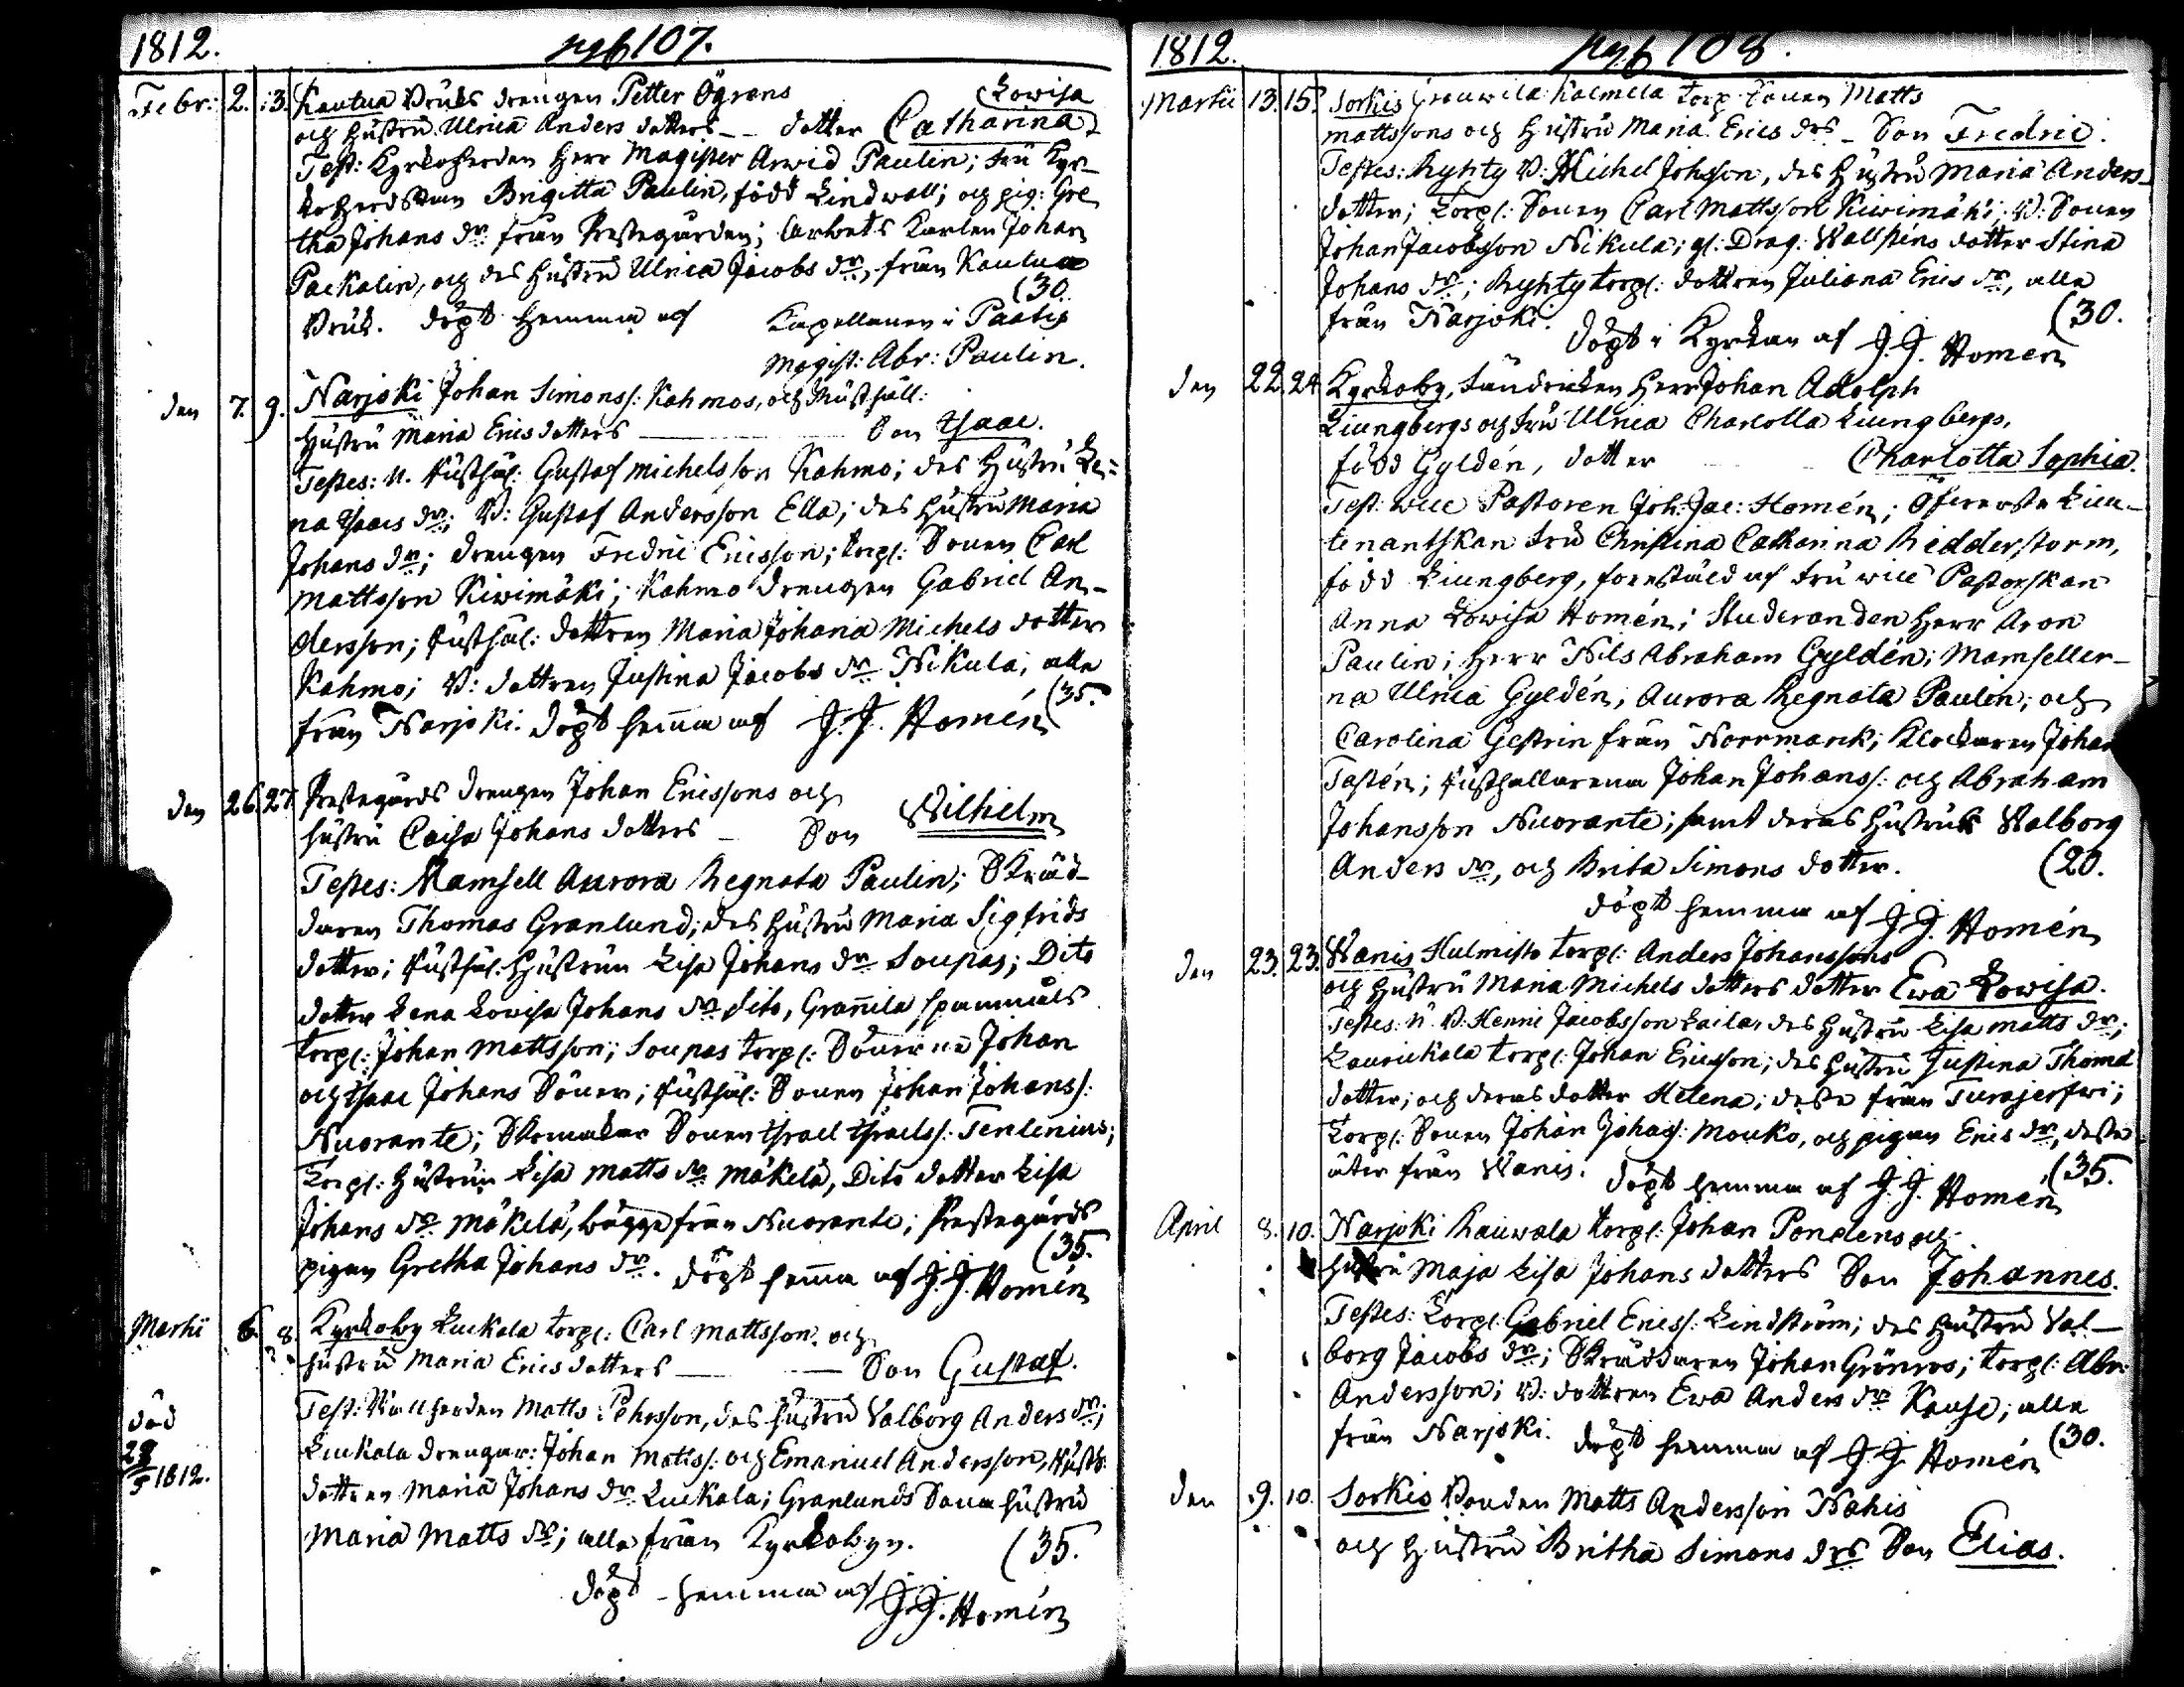 1812. pag 107.
Febr: 2. 3. Kautua Bruks drengen Petter Ögrens Lowisa
och hustru Ulrica Anders dotters — dotter Catharina
Test: Kyrkoherden Herr Magister Arwid Paulin; fru Kyr-
koherdskan Brigitta Paulin, född Lindwall; och pig: Gre
tha Johans dr. från Prestegården; Arbets Karlen Johan
Packalin, och des hustru Ulrica Jacobs dr, från Kautua
(30.
Bruk. döpt hemma af Kapellanen i
Magist: Abr: Paulin.
den 7. 9. Narjoki Johan Simonss: Kahmos, och
Hustru Maria Ericsdotters — Son Isaac.
Testes: N. Rusthål: Gustaf Michelsson Kahmo; des Hustru Le=
na Isacs dr; B: Gustaf Andersson Ella; des hustru Maria
Johans dr; drengen Fredric Ericsson; torp: Sonen Carl
Mattsson Kiwimäki; Kahmo drengen Gabriel An-
dersson; Rusthål: dottren Maria Johana Michels dotter
Kahmo; B: dottren Justina Jacobs dr Nikula, alla
(35.
från Narjoki. döpt hema af J.J. Homén
den 26. 27 Prestegårds drengen Johan Ericssons och
hustru Caisa Johans dotters — Son Wilhelm
Testes: Mamsell Aurora Regnata Paulin; Skräd-
daren Thomas Granlund; des hustru Maria Sigfrids
dotter; Rusthål: Hustrun Lisa Johans dr Soupas; Dito
dotter Lena Lowisa Johans dr dito, Granila spanmåls
torp: Johan Mattsson; Soupas torp: Sönerne Johan
och Isaac Johans Söner; Rusthål: Sonen Johan Johanss:
Nuorante; Skomakar Sonen Israel Israelss: Tenlenius;
Torp: Hustrun Lisa Matts dr Mäkelä, Dito dotter Lisa
Johans dr Mäkelä, bägge från Nuorante; Prestegårds
(35.
pigan Gretha Johans dr. döpt hema af J.J. Homén
Martii 6. 8. Kyrkoby Luckala torp: Carl Mattsson och
hustru Maria Ericsdotters — Son Gustaf.
Test: Wallherden Matts Pehrsson, des hustru Valborg Anders dr;
död Luckala drengar: Johan Matss: och Emanuel Andersson, Rusth:
28/5 1812. dottren Maria Johans dr Luckala; Granlunds Sona hustru
Maria Matts dr; alla från Kyrkobyn. (35.
döpt hemma af J.J. Homén
1812. pag 108.
Martii 13. 15. Sorkis Kalmela torp: Sonen Matts
mattssons och Hustru Maria Erics drs — Son Fredric.
Testes: Ryhty B: Michel Johsson, des Hustru Maria Anders-
dotter; Torp: Sonen Carl Mattsson Kiwimäki; B: Sonen
Johan Jacobsson Nikula; gl: Drag: Wallstens dotter Stina
Johans dr; Ryhty torp: dottren Juliana Erics dr, alla
från Narjoki. (30.
Döpt i Kyrkan af J.J. Homén
den 22. 24 Kyrkoby, Fändricken Herr Johan Adolph
Liungbergs och fru Ulrica Charlotta Liungbergs,
född Gyldén, dotter Charlotta Sophia.
Test: Wice Pastoren Joh: Jac: Homén; Öfwerste Lieu-
tenantskan fru Christina Catharina Ridderstorm,
född Liungberg, förestäld af fru wice Pastorskan
Anna Lowisa Homén; Studeranden Herr Aron
Paulin; Herr Nils Abraham Gyldén; Mamseller-
na Ulrica Gyldén, Aurora Regnata Paulin; och
Carolina Gestrin från Norrmark; Klockaren Johan
Tastén; Rusthållarena Johan Johanss: och Abraham
Johansson Nuorante; samt deras hustrur Walborg
Anders dr, och Brita Simons dotter. (20.
döpt hemma af J.J. Homén
den 23. 23. Wanis Hulmisto torp: Anders Johanssons
och hustru Maria Michels dotters dotter Ewa Lowisa.
Testes: N. B. Henric Jacobsson Laila, des Hustru Lisa Matts dr;
Laurikala torp: Johan Ericsson; des hustru Justina Thomæ
dotter; och deras dotter Helena; desse från Turajerfwi;
Torp: Sonen Johan Johass: Mouko, och pigan Erics dr, desse
åter från Wanis. (35.
döpt hemma af J.J. Homén
April 8. 10. Narjoki Rauwola torp: Johan Pondens och
hustru Maja Lisa Johans dotters Son Johannes.
Testes: Torp: Gabriel Ericss: Lindström; des Hustru Val-
borg Jacobs dr; Skräddaren Johan Grönros; torp: Abr:
Andersson; B: dottren Ewa Anders dr Krouse; alla
från Narjoki. (30.
döpt hemma af J.J. Homén
den 9. 10. Sorkis Bonden Matts Andersson Nahis
och Hustru Britha Simons drs Son Elias.